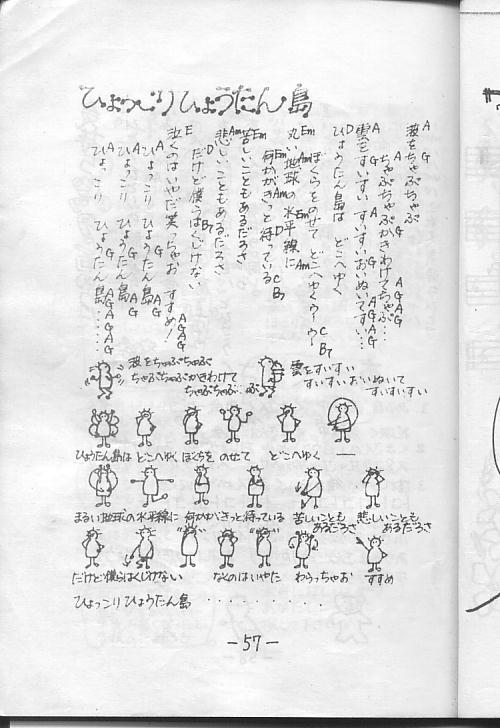 ひょっこりひょうたん島
A G A G A G
波をちゃぷちゃぷ
ちゃぷちゃぷかきわけてちゃぷ…
A G A G A G A G
雲をすいすい すいすいおいぬいてすい…
D
ひょうたん島は どこへゆく
ぼくらをのせて どこへゆくウーウー
C B7
Em Am Em Am
丸い地球の水平線に
Em Am C B7
何かがきっと待っている
Em
苦しいこともあるだろさ
Am
悲しいこともあるだろさ
D B7
だけど僕らはくじけない
E
泣くのはいやだ笑っちゃお すすめ!
A G A G
ひょっこり ひょうたん島 A G
ひょっこり ひょうたん島 A G
ひょっこり ひょうたん島…… A G A G A G
波をちゃぷちゃぷ
ちゃぷちゃぷかきわけて
ちゃぷちゃぷ…ぷ
雲をすいすい
すいすいおいぬいて
すいすいすい
ひょうたん島は どこへゆく ぼくらを のせて どこへゆく ー
まるい地球の水平線に 何かがきっと待っている 苦しいことも あるだろさ 悲しいことも あるだろさ
だけど僕らはくじけない なくのはいやだ わらっちゃお すすめ
ひょっこりひょうたん島 ・・・・・・・・・・
-57-